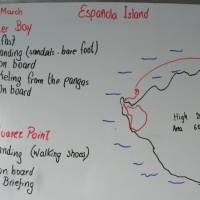 March
Española Island
Bay
anding (sandals - bare foot)
on board
keling from the pangas
on board
High
Area
Point
anding (walking shoes)
on board
Briefing